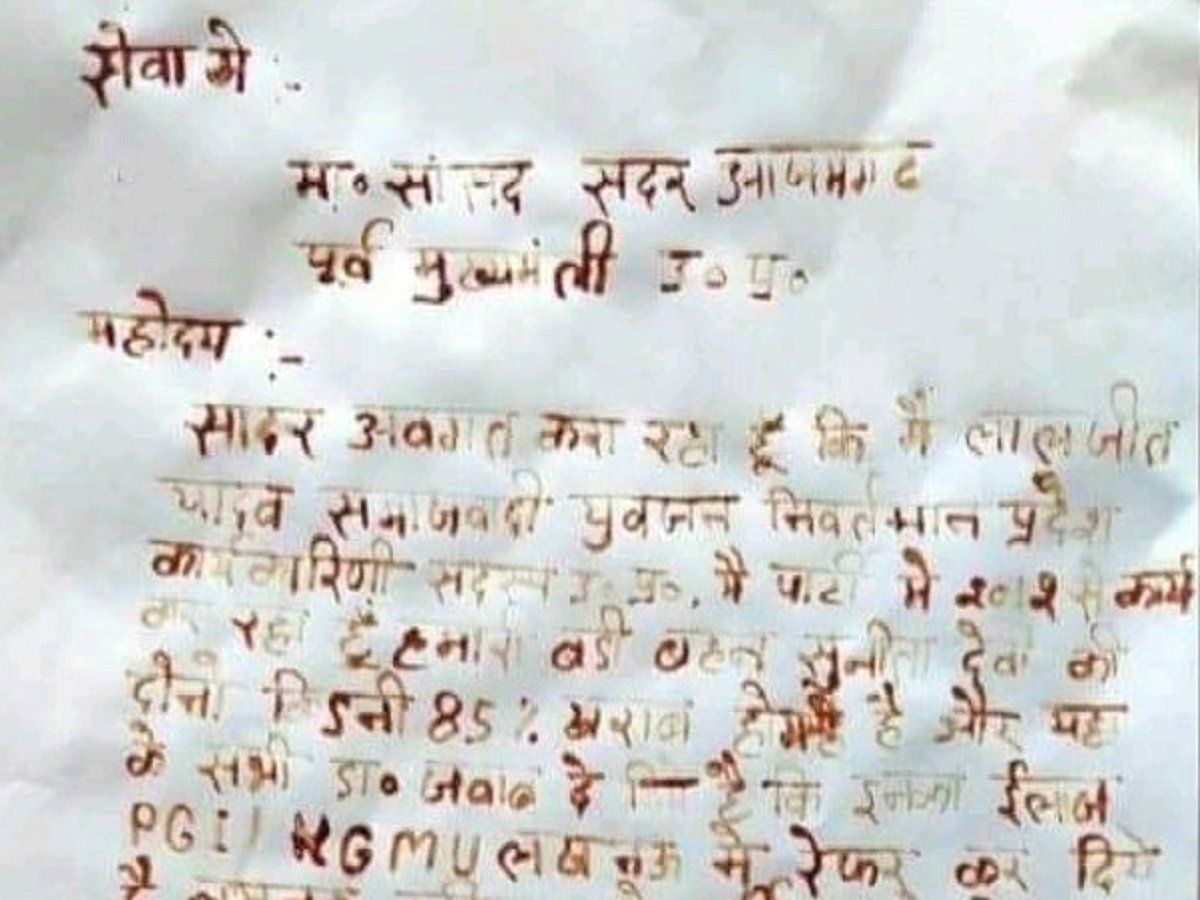 सेवा मे :-
मा॰ सांसद सदर आजमगढ
पूर्व मुख्यमंत्री उ॰ प्र॰
महोदय :-
सादर अवगत करा रहा हूँ कि मैं लालजीत
यादव समाजवादी युवजन निवर्तमान प्रदेश
कार्यकारिणी सदस्य उ॰ प्र॰, मै पार्टी मे २०१२ से कार्य
कर रहा हूँ हमारी बडी बहन सुनीता देवी की
दोनो किडनी 85% खराब हो गई है और यहा
के सभी डा॰ जवाब दे है कि इनका ईलाज
PGI KGMU लखनऊ मे रेफर कर दिये
है